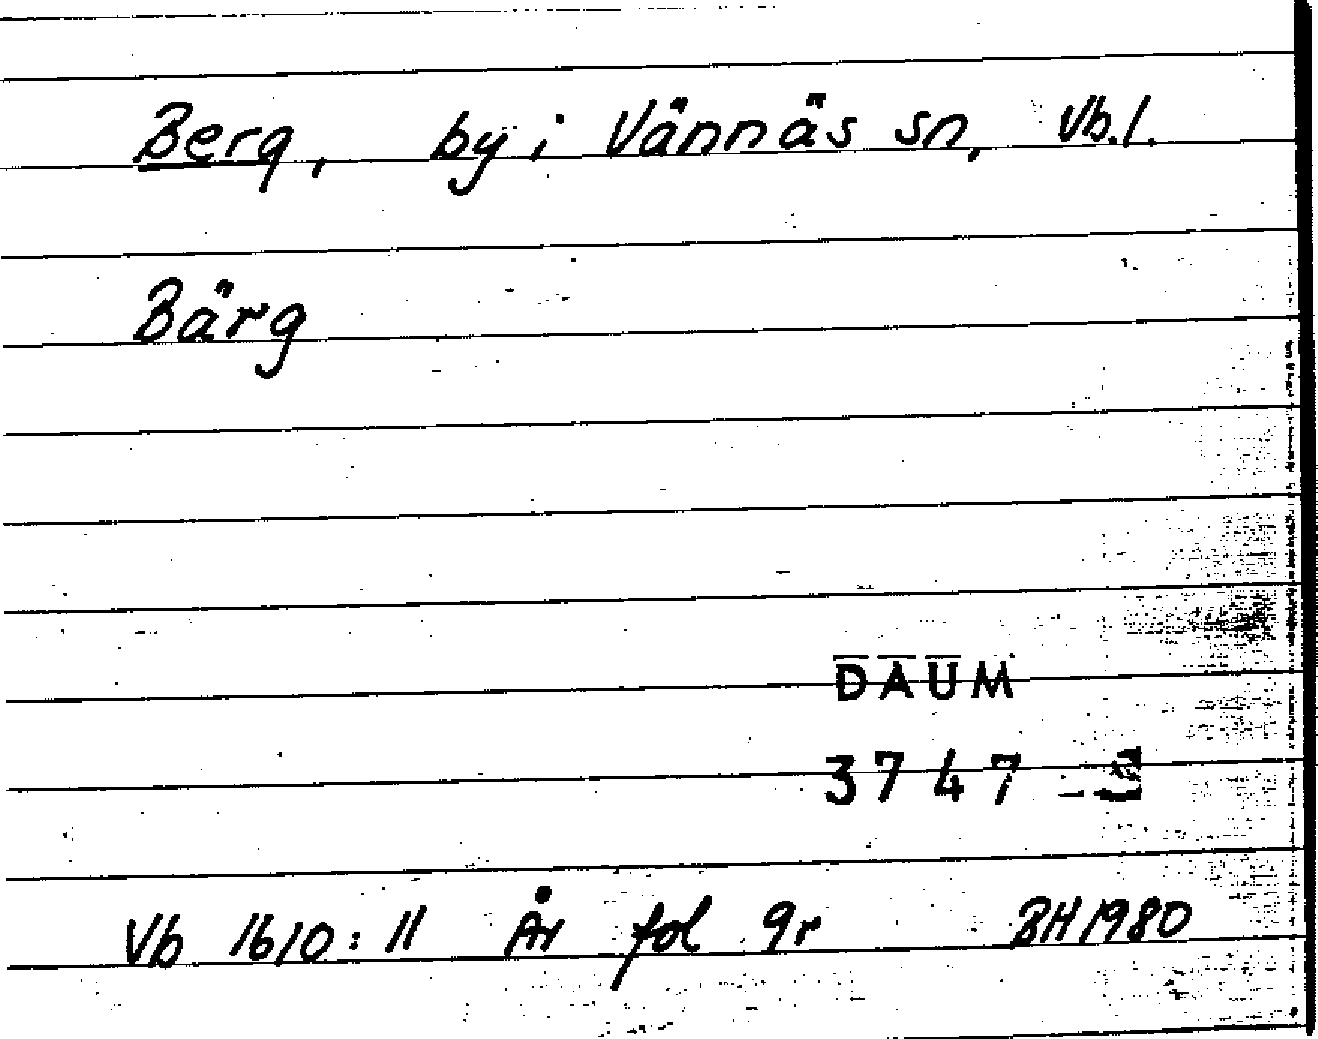 Berg, by i Vännäs sn, Vb.l.
Bärg
DAUM
3747
Vb 1610:11 År fol 9r BH 1980